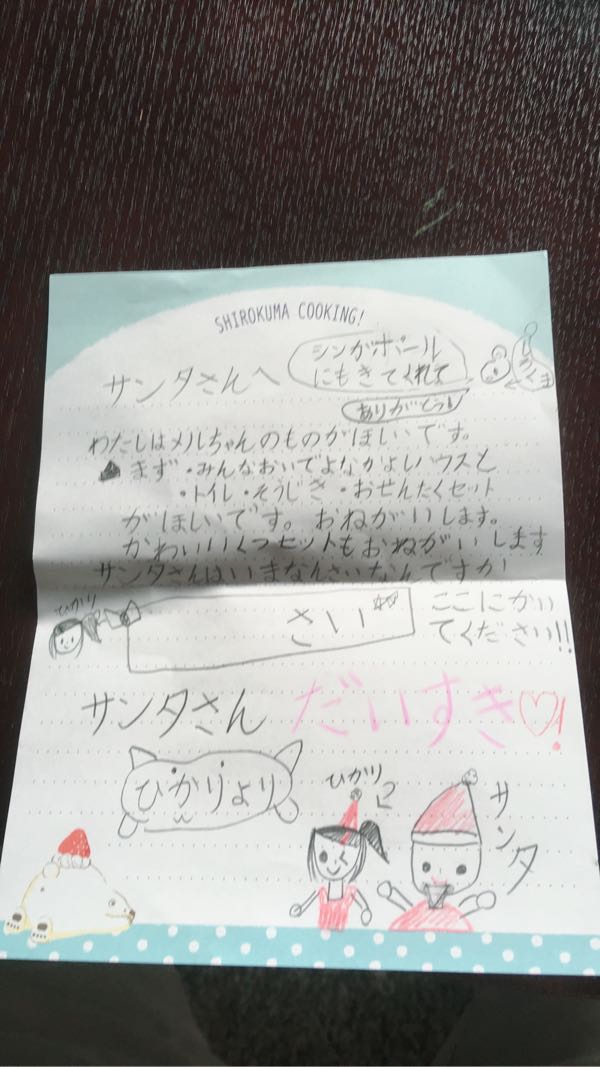 SHIROKUMA COOKING!
サンタさんへ
シンガポール
にもきてくれて
ありがとう!
しろくま
わたしはメルちゃんのものがほいいです。
まず・みんなおいでよなかよしハウスと
・トイレ・そうじき・おせんたくセット
がほいいです。おねがいします。
かわいいくつセットもおねがいします
サンタさんはいまなんさいなんですか
ひかり
さい
ここにかい
てください!!
サンタさん だいすき♡!
ひかりより
ひかり
サンタ